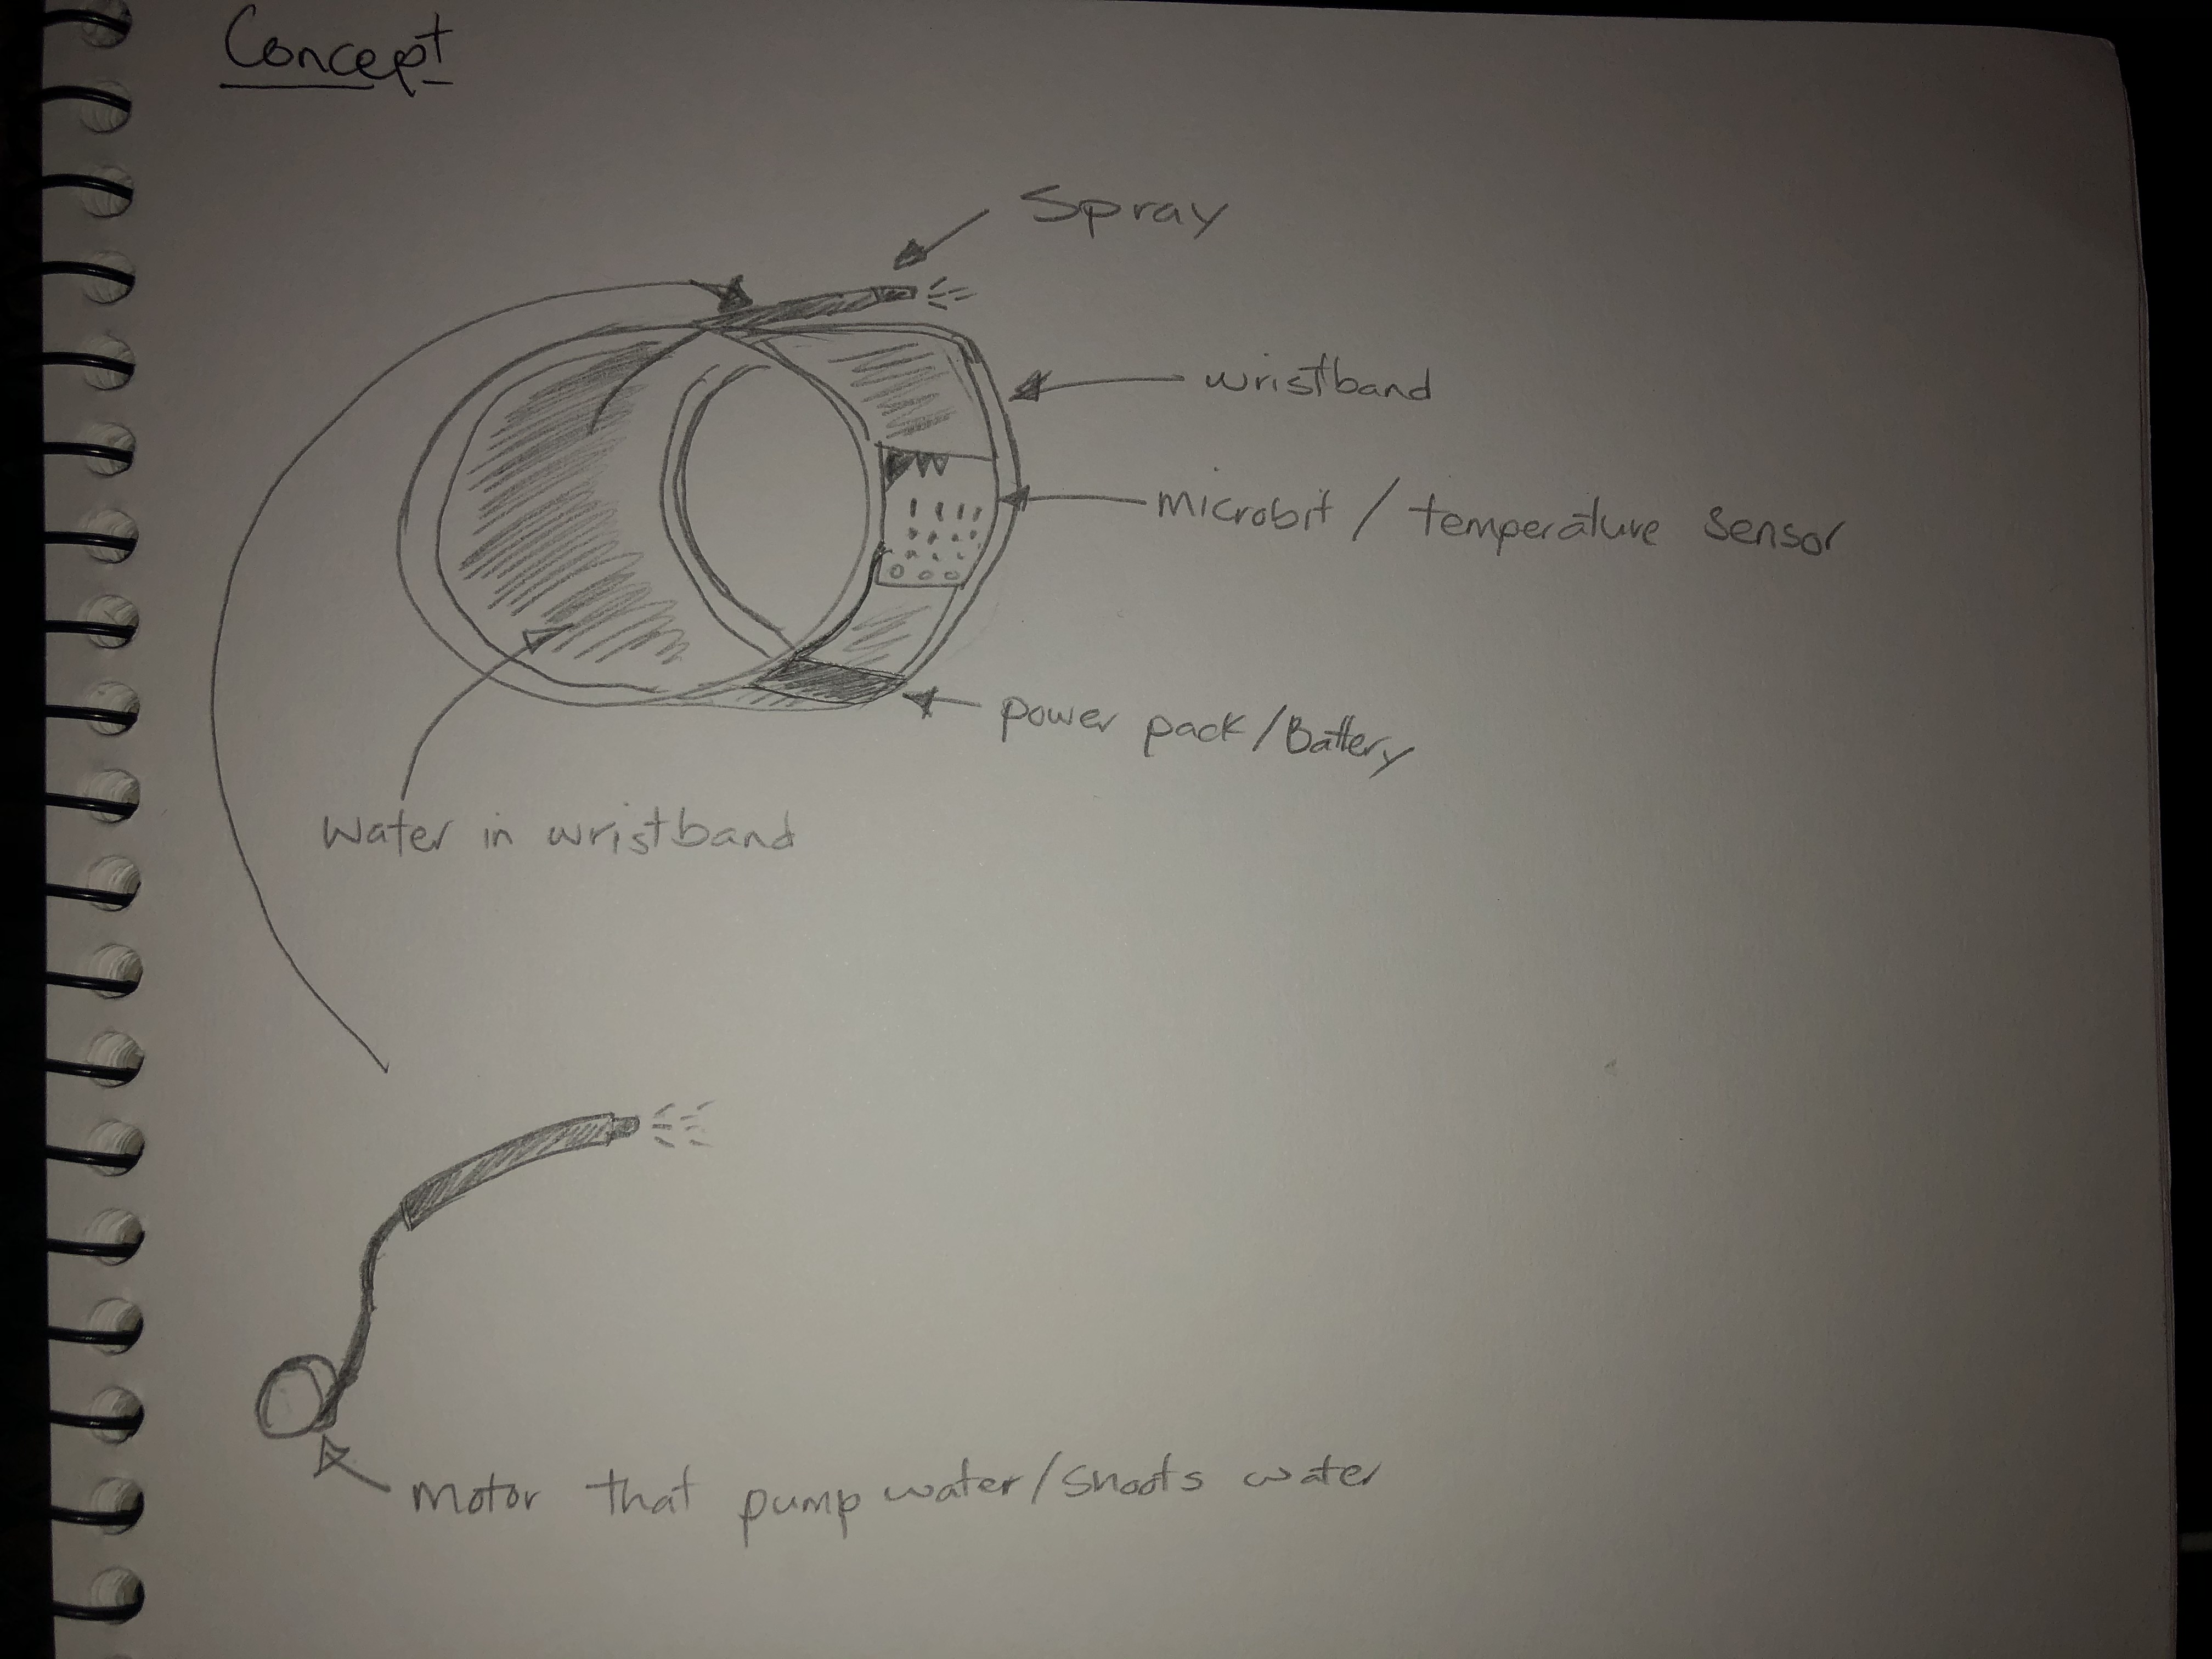 Concept
Spray
wristband
microbit / temperature sensor
power pack/Battery
water in wristband
motor that pump water/shoots water